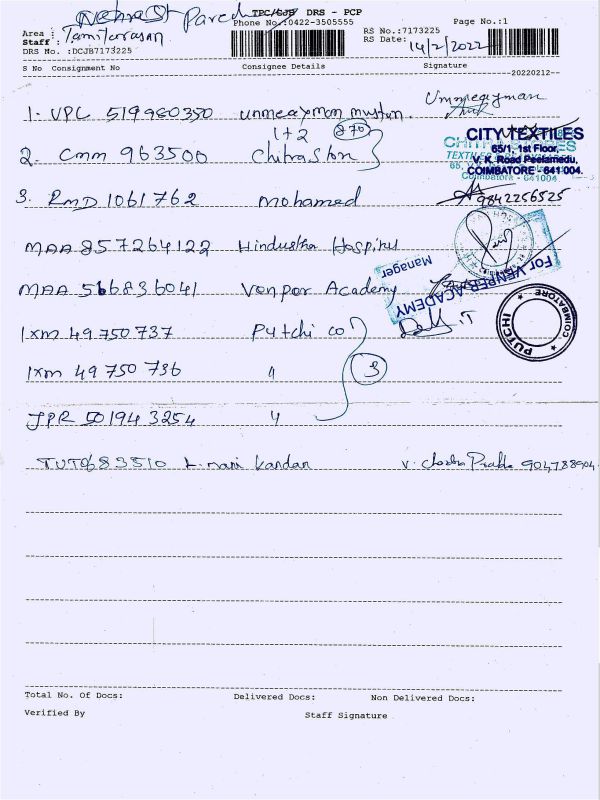 TPC/CJB DRS - PCP
Parcel
Area :
Phone No.:0422-3505555
Page No.:1
RS No.:7173225
Staff : Tamilarasan
RS Date: 14/2/2022
DRS No. :DCJB7173225
S No Consignment No Consignee Details Signature
20220212
1. VPL 519980350 ummeayman
1+2 270
2. Cmm 963500 Chitraston
CITY TEXTILES
65/1, 1st Floor,
V. K. Road Peelamedu,
COIMBATORE - 641 004.
3. RMD 1061762 Mohamed
9842256525
MAA 857264122 Hindustan Hospital
MAA 566836041 Venper Academy
Manager
For VENPER ACADEMY
IXM 49750737 Putchi co
PUTCHI COIMBATORE
IXM 49750736 "
3
JPR 501943254 "
TUT0683510 L. mani kandan
Total No. Of Docs: Delivered Docs: Non Delivered Docs:
Verified By Staff Signature